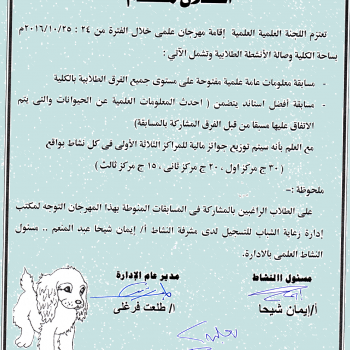 تعتزم اللجنة العلمية العلمية إقامة مهرجان علمى خلال الفترة من ٢٤ : ٢٠١٦/١٠/٢٥م
بساحة الكلية وصالة الأنشطة الطلابية وتشمل الآتي :
- مسابقة معلومات عامة علمية مفتوحة على مستوى جميع الفرق الطلابية بالكلية
- مسابقة أفضل استاند يتضمن ( احدث المعلومات العلمية عن الحيوانات والتى يتم
الاتفاق عليها مسبقا من قبل الفرق المشاركة بالمسابقة)
مع العلم بأنه سيتم توزيع جوائز مالية للمراكز الثلاثة الأولى فى كل نشاط بواقع
( ٣٠ ج مركز اول ، ٢٠ ج مركز ثانى ، ١٥ ج مركز ثالث )
ملحوظة :-
على الطلاب الراغبين بالمشاركة فى المسابقات المنوطة بهذا المهرجان التوجه لمكتب
إدارة رعاية الشباب للتسجيل لدى مشرفة النشاط أ/ إيمان شيحا عبد المنعم .. مسئول
النشاط العلمى بالادارة.
مسئول االنشاط
مدير عام الإدارة
أ/إيمان شيحا
ا/ طلعت فرغلى